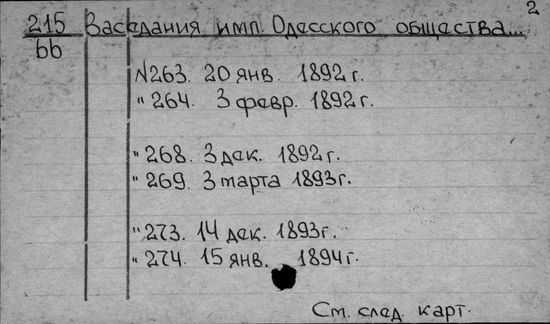 2
215 Заседания имп. Одесского общества...
66
N263. 20 янв. 1892 г.
" 264. 3 февр. 1892 г.
" 268. 3 дек. 1892 г.
" 269. 3 марта 1893 г.
" 273. 14 дек. 1893 г.
" 274. 15 янв. 1894 г.
См. след. карт.